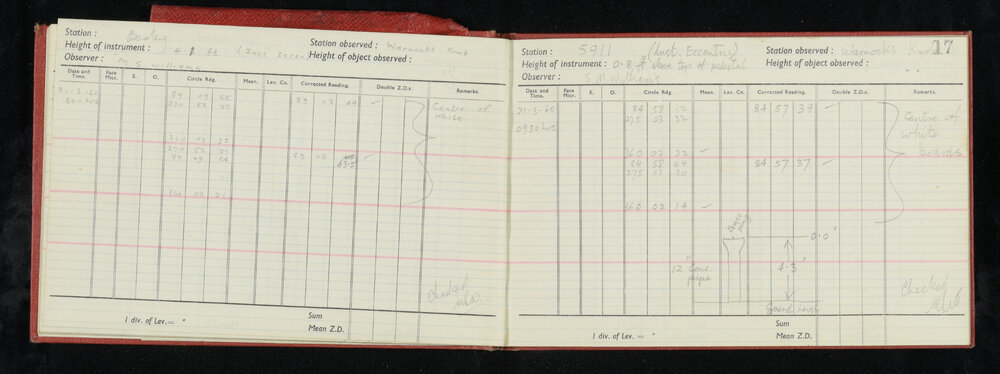 Station : Station observed : Warnocks Knob
Height of instrument : 4.1 ft (Inst Eccen Height of object observed :
Observer : M G Williams
Date and Time. Face Micr. E. O. Circle Rdg. Mean. Lev. Co. Corrected Reading. Double Z.D.s. Remarks.
21-3-60 89 09 55 89 08 44 - Centre of
270 52 27 white
360 02 22
270 52 27
89 09 24 89 08 43.5 -
360 02 21
Checked
1 div. of Lev.= " Sum
Mean Z.D.
17
Station : 5911 (Inst. Eccentric) Station observed : Warnocks Knob
Height of instrument : 0.8 ft above top of pedestal Height of object observed :
Observer : Williams
Date and Time. Face Micr. E. O. Circle Rdg. Mean. Lev. Co. Corrected Reading. Double Z.D.s. Remarks.
21-3-60 84 58 50 84 57 39 - Centre of
0930 hrs 275 03 32 white
360 02 22 - boards
84 58 44 84 57 37 -
275 03 30
360 02 14 -
Brass Plug
0.0'
12" Conc. pipe
4.3'
Ground Level
Checked
1 div. of Lev.= " Sum
Mean Z.D.